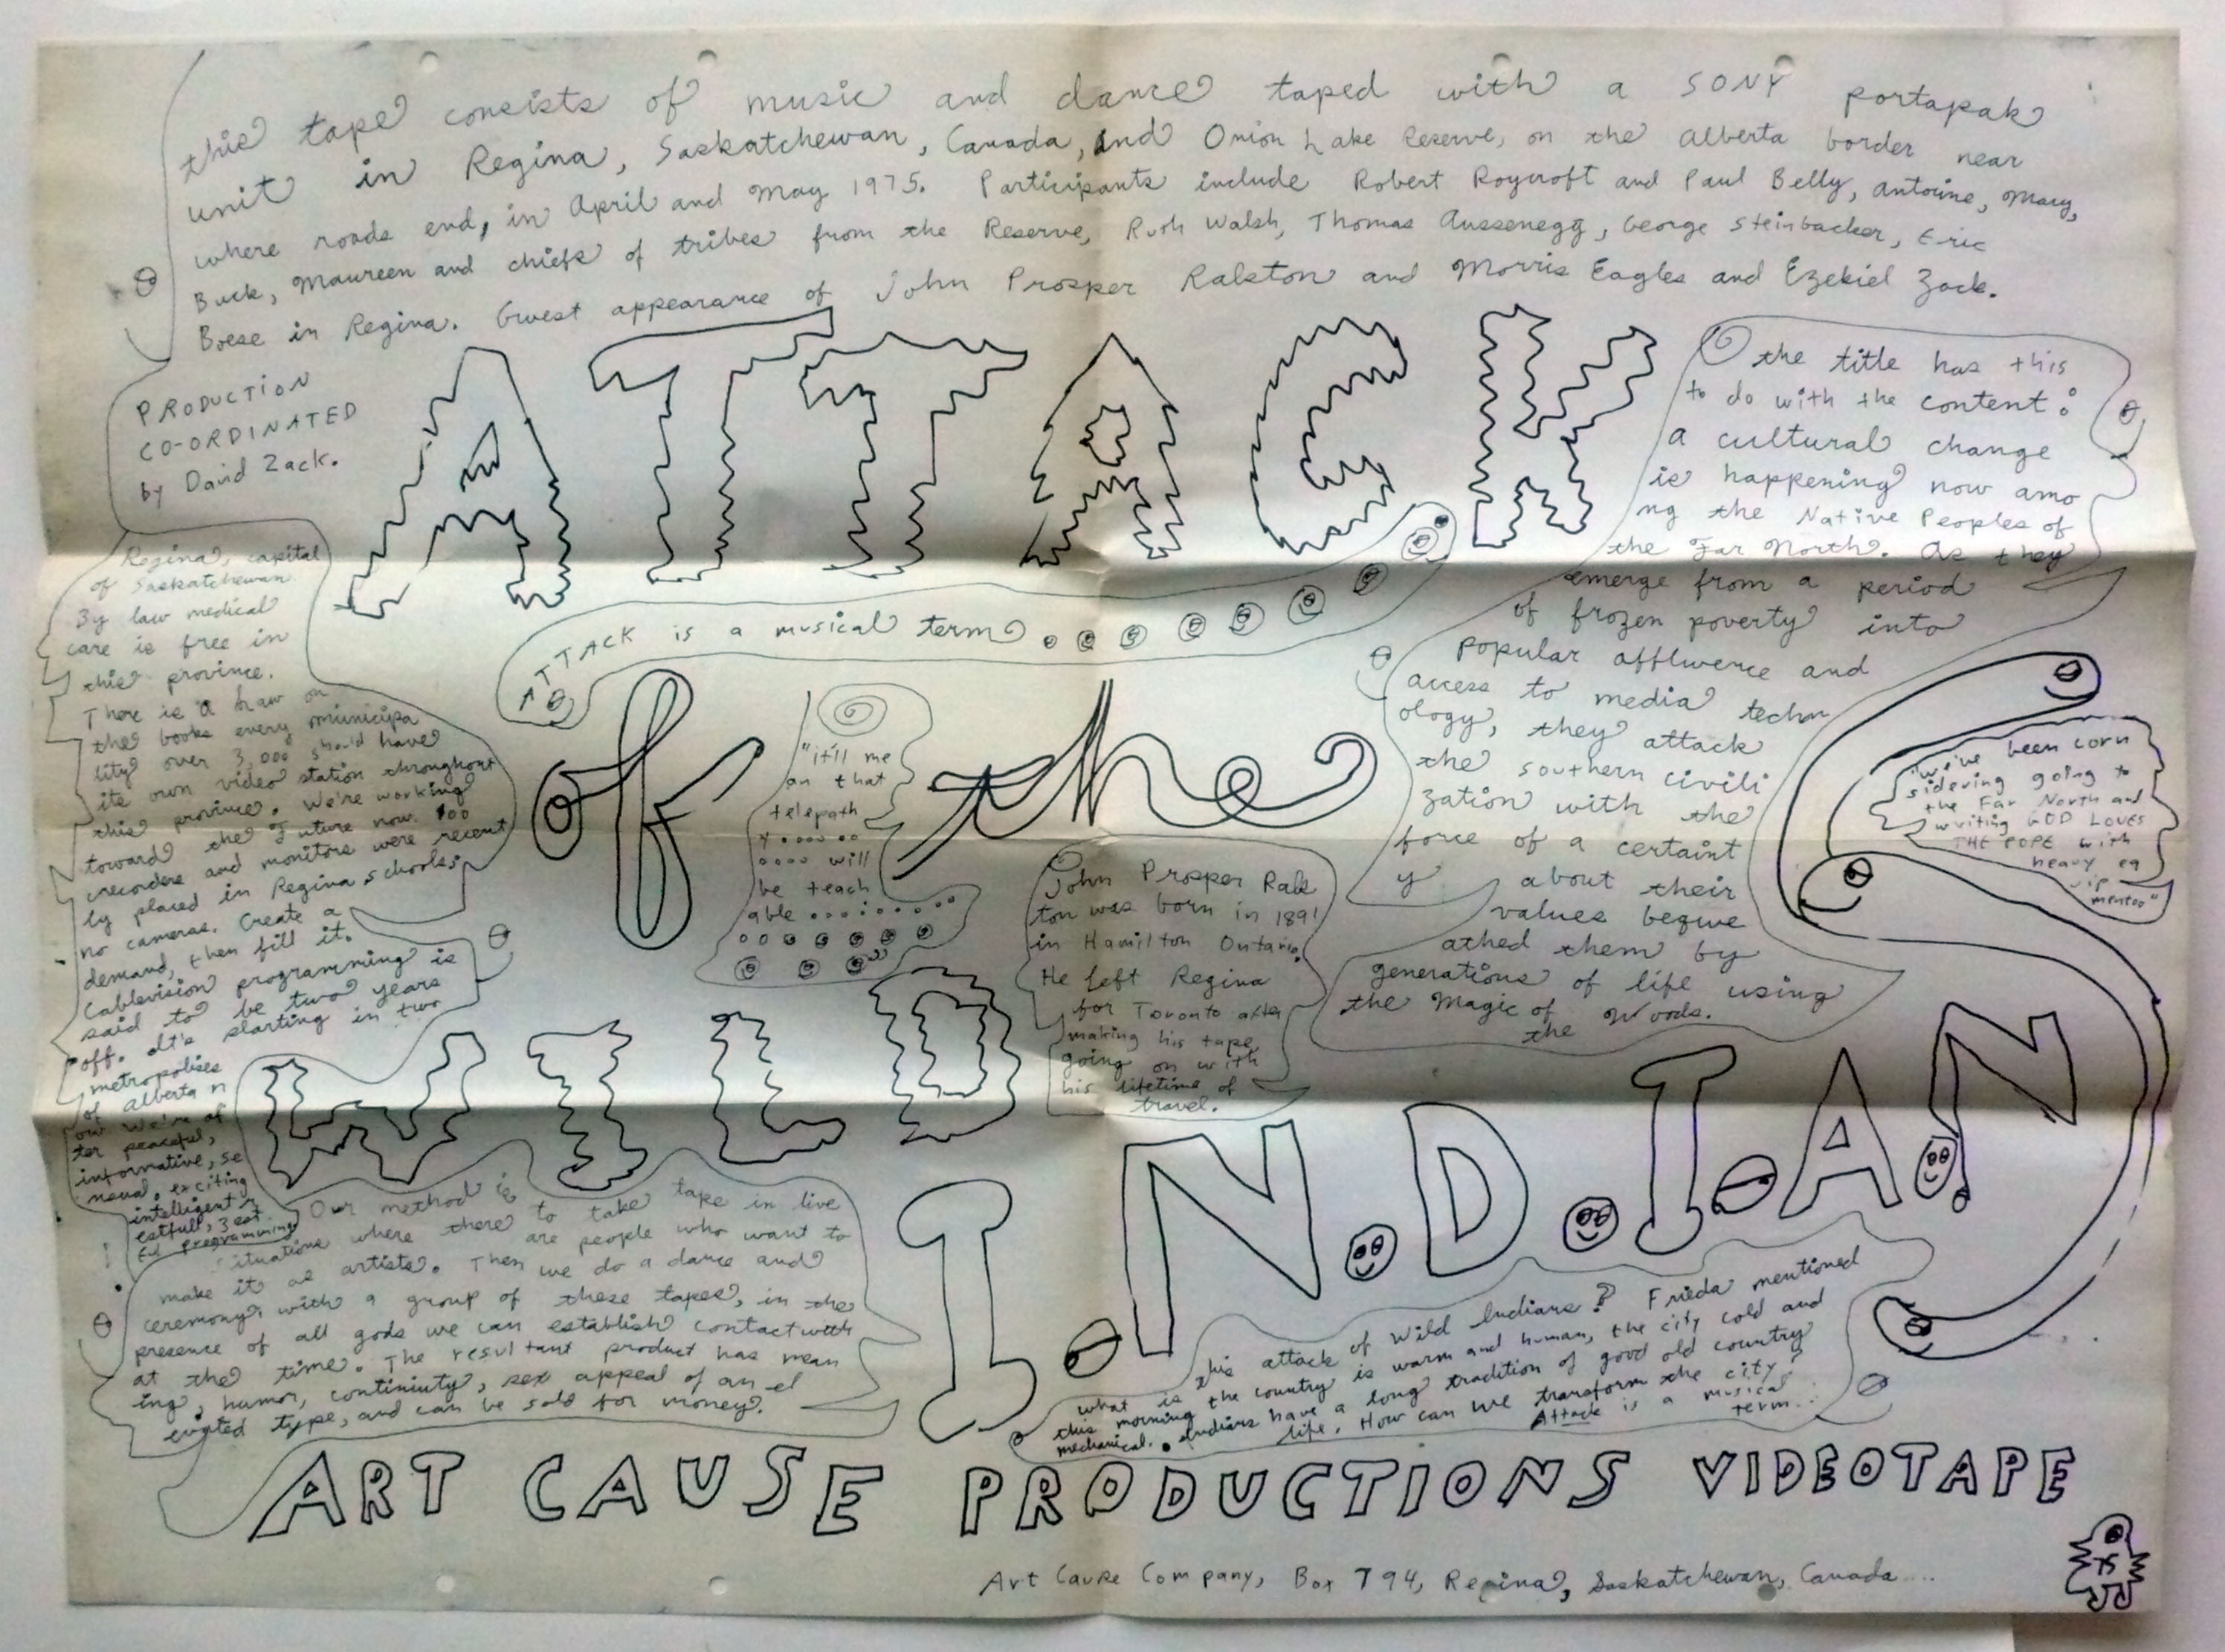 this tape consists of music and dance taped with a SONY portapak
unit in Regina, Saskatchewan, Canada, and Onion Lake Reserve, on the Alberta border near
where roads end, in April and May 1975. Participants include Robert Roycroft and Paul Belly, Antoine, Mary,
Buck, Maureen and chiefs of tribes from the Reserve, Ruth Walsh, Thomas Aussenegg, George Steinbacker, Eric
Boese in Regina. Guest appearance of John Prosper Ralston and Morris Eagles and Ezekiel Zack.
PRODUCTION
CO-ORDINATED
by David Zack.
ATTACK
the title has this
to do with the content:
a cultural change
is happening now amo
ng the Native Peoples of
the Far North. As they
emerge from a period
of frozen poverty into
popular affluence and
access to media techn
ology, they attack
the southern civili
zation with the
force of a certaint
y about their
values beque
athed them by
generations of life using
the Magic of
the Woods.
ATTACK is a musical term
Regina, capital
of Saskatchewan.
By law medical
care is free in
this province.
There is a law on
the books every municipa
lity over 3,000 should have
its own video station throughout
this province. We're working
toward the Future now. 100
recorders and monitors were recent
ly placed in Regina schools;
no cameras. Create a
demand, then fill it.
Cablevision programming is
said to be two years
off. It's starting in two
metropolises
of Alberta n
ow we're af
ter peaceful,
informative, se
nsual, exciting
intelligent r
estfull, zest
ful programming
of the
"it'll me
an that
telepath
y ......
.... will
be teach
able .........
"
"we've been con
sidering going to
the Far North and
writing GOD LOVES
THE POPE with
heavy eq
uip
mentoo"
John Prosper Rals
ton was born in 1891
in Hamilton Ontario.
He left Regina
for Toronto after
making his tape,
going on with
his lifetime of
travel.
WILD
I.N.D.I.A.N
Our method is to take tape in live
situations where there are people who want to
make it as artists. Then we do a dance and
ceremony with a group of these tapes, in the
presence of all gods we can establish contact with
at the time. The resultant product has mean
ing, humor, continiuty, sex appeal of an el
evated type, and can be sold for money.
what is this attack of Wild Indians? Frieda mentioned
this morning the country is warm and human, the city cold and
mechanical. Indians have a long tradition of good old country
life. How can we transform the city?
Attack is a musical
term...
ART CAUSE PRODUCTIONS VIDEOTAPE
Art Cause Company, Box 794, Regina, Saskatchewan, Canada ....
75